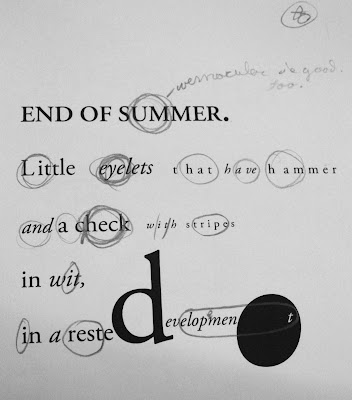 vernacular is good.
too.
END OF SUMMER.
Little eyelets that have hammer
and a check with stripes
in wit,
in a reste development